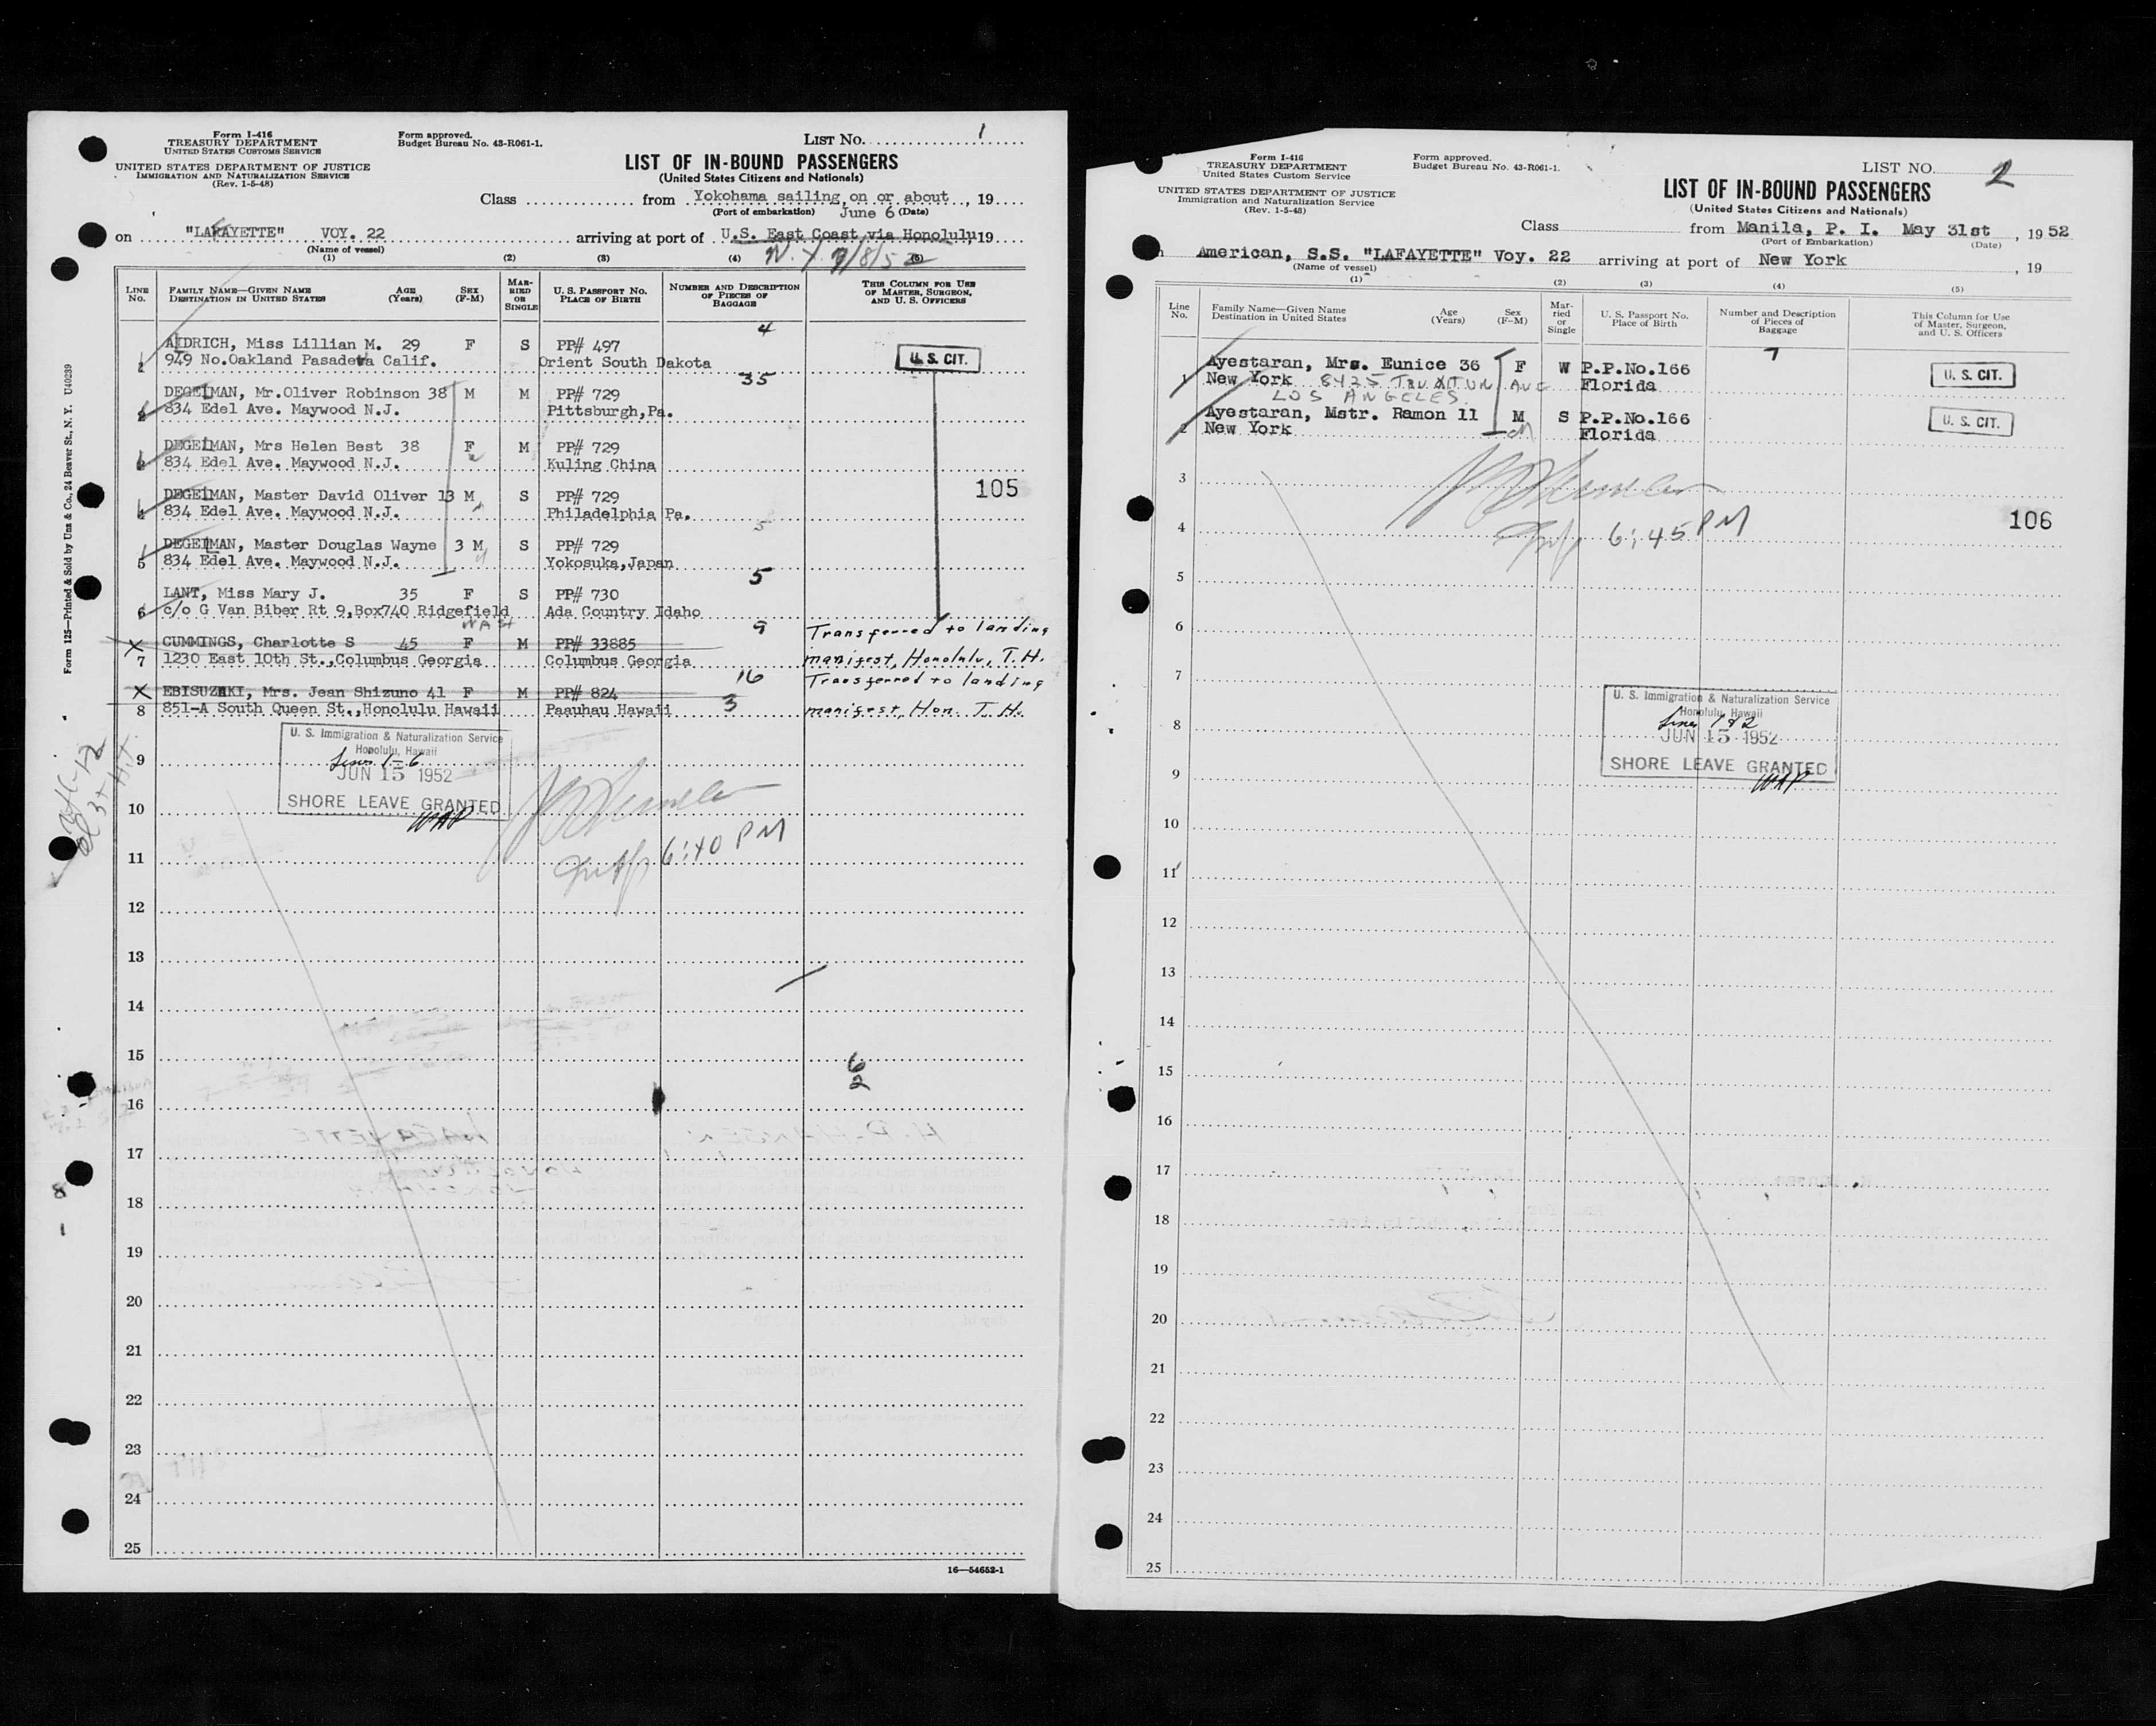 Form I-416
TREASURY DEPARTMENT
UNITED STATES CUSTOMS SERVICE
UNITED STATES DEPARTMENT OF JUSTICE
IMMIGRATION AND NATURALIZATION SERVICE
(Rev. 1-5-48)
Form approved.
Budget Bureau No. 43-R061-1.
LIST No. 1
LIST OF IN-BOUND PASSENGERS
(United States Citizens and Nationals)
Class from Yokohama sailing on or about, 19
(Port of embarkation) June 6 (Date)
on "LAFAYETTE" VOY. 22 arriving at port of U.S. East Coast via Honolulu 19
(Name of vessel)
N.Y. 7/8/52
(1) (2) (3) (4) (5)
LINE No. FAMILY NAME—GIVEN NAME DESTINATION IN UNITED STATES AGE (Years) SEX (F-M) MARRIED OR SINGLE U. S. PASSPORT No. PLACE OF BIRTH NUMBER AND DESCRIPTION OF PIECES OF BAGGAGE THIS COLUMN FOR USE OF MASTER, SURGEON, AND U. S. OFFICERS
4
ALDRICH, Miss Lillian M. 29 F S PP# 497
949 No.Oakland Pasadena Calif. Orient South Dakota
U. S. CIT.
35
DEGELMAN, Mr.Oliver Robinson 38 M M PP# 729
834 Edel Ave. Maywood N.J. Pittsburgh,Pa.
DEGELMAN, Mrs Helen Best 38 F M PP# 729
834 Edel Ave. Maywood N.J. Kuling China
DEGELMAN, Master David Oliver 13 M S PP# 729
834 Edel Ave. Maywood N.J. Philadelphia Pa.
105
DEGELMAN, Master Douglas Wayne 3 M S PP# 729
5 834 Edel Ave. Maywood N.J. Yokosuka,Japan
5
LANT, Miss Mary J. 35 F S PP# 730
6 c/o G Van Biber Rt 9,Box740 Ridgefield Ada Country Idaho
WASH
9
X CUMMINGS, Charlotte S 45 F M PP# 33885 Transferred to landing
7 1230 East 10th St.,Columbus Georgia Columbus Georgia manifest, Honolulu, T.H.
16
X EBISUZAKI, Mrs. Jean Shizuno 41 F M PP# 824 Transferred to landing
8 851-A South Queen St.,Honolulu Hawaii Paauhau Hawaii 3 manifest, Hon. T.H.
U. S. Immigration & Naturalization Service
Honolulu, Hawaii
Lines 1-6
JUN 15 1952
SHORE LEAVE GRANTED
WAP
6:40 PM
9
10
11
12
13
14
15
6
2
16
17
18
19
20
21
22
23
24
25
16—54652-1
Form 125—Printed & Sold by Unz & Co., 24 Beaver St., N. Y. U40239
Form I-416
TREASURY DEPARTMENT
United States Custom Service
UNITED STATES DEPARTMENT OF JUSTICE
Immigration and Naturalization Service
(Rev. 1-5-48)
Form approved.
Budget Bureau No. 43-R061-1.
LIST NO. 2
LIST OF IN-BOUND PASSENGERS
(United States Citizens and Nationals)
Class from Manila, P. I. May 31st, 1952
(Port of Embarkation) (Date)
American, S.S. "LAFAYETTE" Voy. 22 arriving at port of New York, 19
(Name of vessel)
(1) (2) (3) (4) (5)
Line No. Family Name—Given Name Destination in United States Age (Years) Sex (F-M) Married or Single U. S. Passport No. Place of Birth Number and Description of Pieces of Baggage This Column for Use of Master, Surgeon, and U. S. Officers
7
Ayestaran, Mrs. Eunice 36 F W P.P.No.166
1 New York 8425 AVE Florida
LOS ANGELES.
U. S. CIT.
Ayestaran, Mstr. Ramon 11 M S P.P.No.166
2 New York Florida
U. S. CIT.
3
4
6:45 PM
106
5
6
7
U. S. Immigration & Naturalization Service
Honolulu, Hawaii
Lines 1&2
JUN 15 1952
SHORE LEAVE GRANTED
WAP
8
9
10
11
12
13
14
15
16
17
18
19
20
21
22
23
24
25